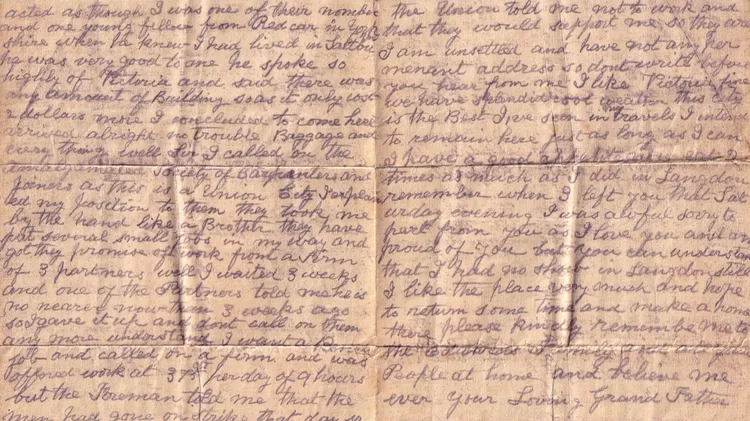 acted as though I was one of their number
and one young fellow from Redcar in York
shire when he knew I had lived in
he was very good to me he spoke so
highly of Victoria and said there was
any amount of Building so as it only cost
2 dollars more I concluded to come here
arrived alright no trouble Baggage and
every thing well Sir I called on the
Amalgamated Society of Carpenters and
Joiners as this is a Union City I explain
ed my Position to them they took me
by the hand like a Brother they have
put several small Jobs in my way and
got they promise of work from a Firm
of 3 partners well I waited 3 weeks
and one of the Partners told me he is
no nearer now than 3 weeks ago
so I gave it up and dont call on them
any more understand I want a
Job and called on a firm and was
offered work at per day of 9 hours
but the Foreman told me that the
men had gone on strike that day so
the Union told me not to work and
that they would support me so they are
I am unsetted and have not any per
menant address so dont write before
you hear from me I like Victoria fine
we have splendid cool weather this city
is the Best I,ve seen in travels I intend
to remain here just as long as I can
I have a good appetite
times as much as I did in Langdon
remember when I left you that Sat
urday evening I was awful sorry to
part from you as I love you and am
proud of you but you can understand
that I had no show in Langdon still
I like the place very much and hope
to return some time and make a home
there please kindly remember me to
the Family and all the
People at home and believe me
ever Your Loving Grand Father